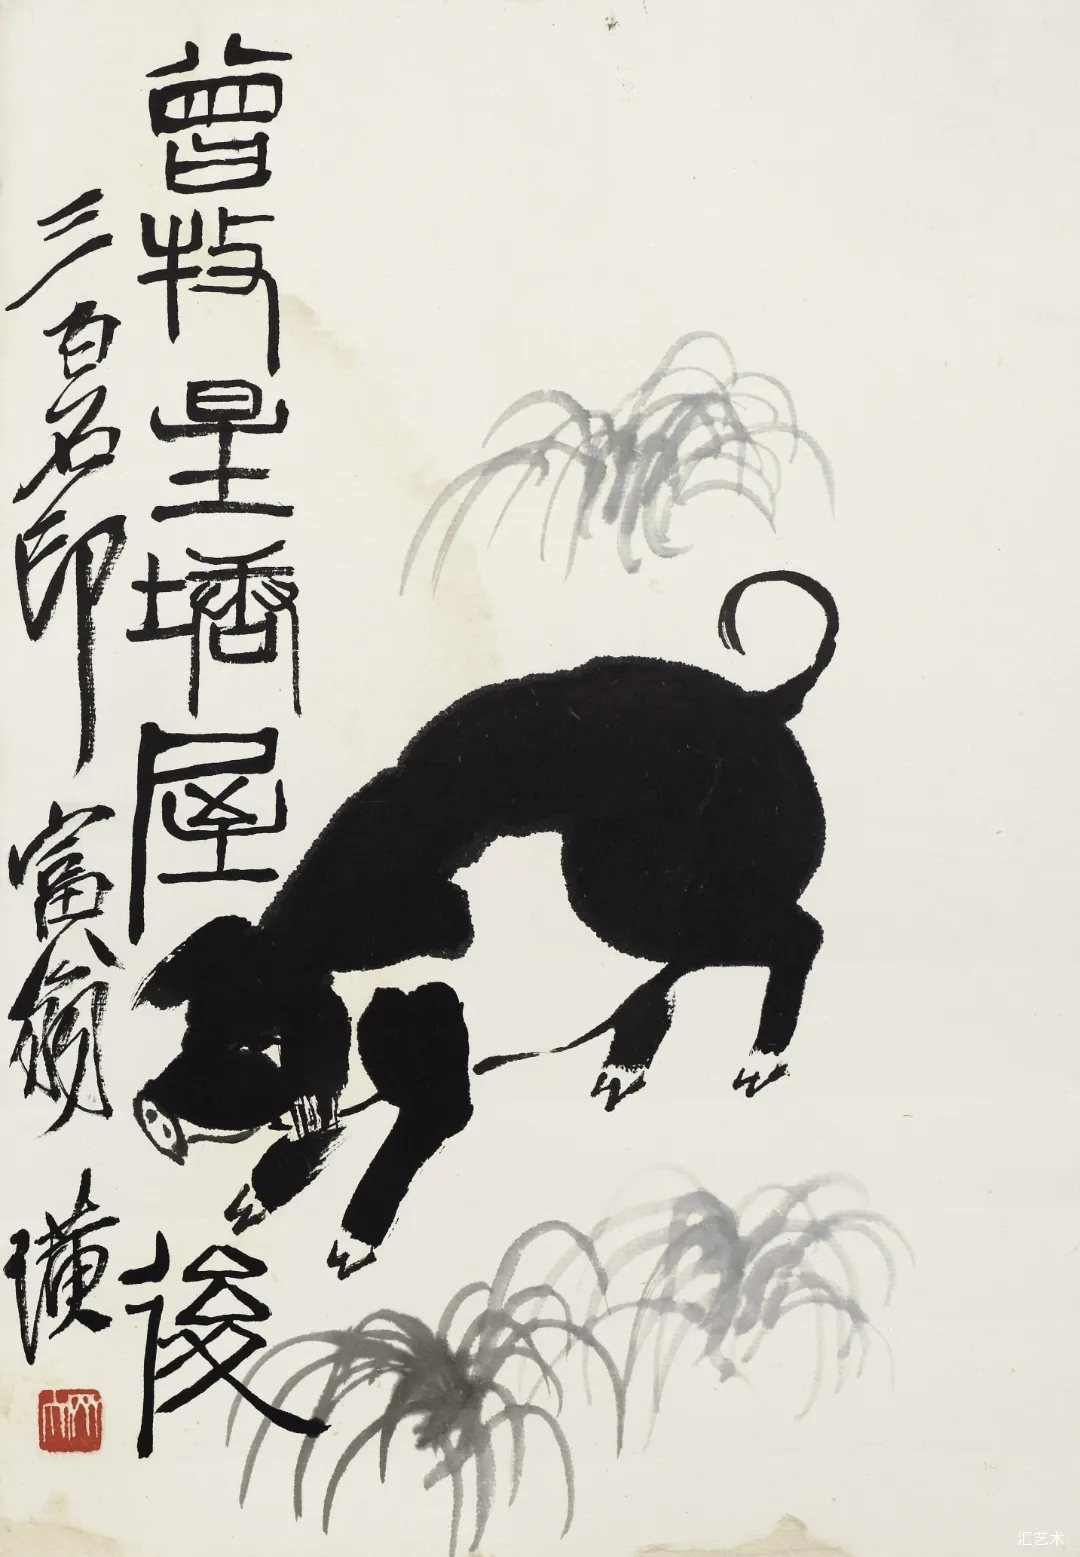 曾牧星塘屋後
三百石印富翁
璜
汇艺术